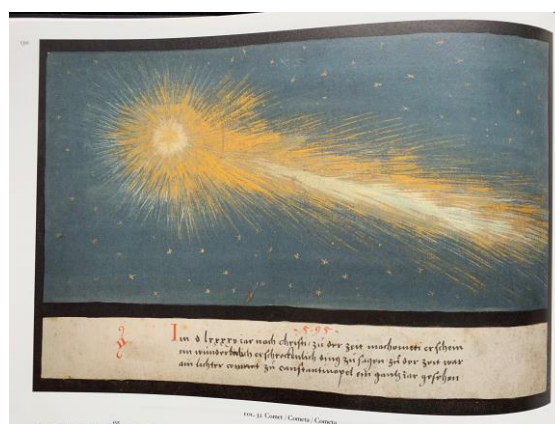 150
·5·9·5·
Im d lxxxxv iar nach christi: zů der zeit machometi erschein
ein wunderbarlich erschrockenlich ding zů sagen zů der zeit war
ain liechter comet zů constantinopel ein gantz iar gesehen
FOL. 52 Comet / Cometa / Cometa